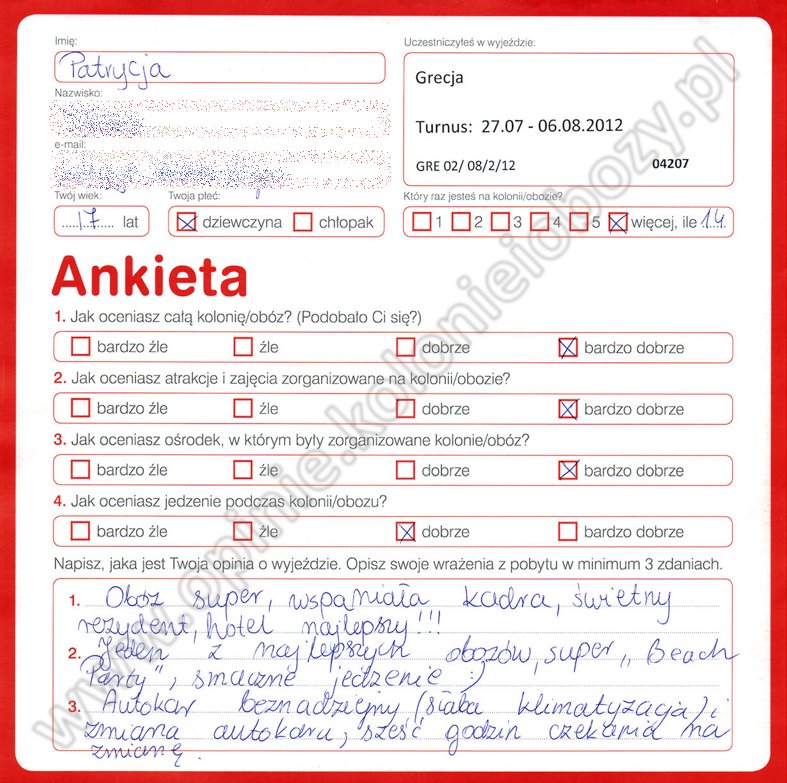 Imię:
Patrycja
Uczestniczyłeś w wyjeździe:
Grecja
Turnus: 27.07 - 06.08.2012
GRE 02/ 08/2/12 04207
Nazwisko:
e-mail:
Twój wiek:
17 lat
Twoja płeć:
dziewczyna chłopak
Który raz jesteś na kolonii/obozie?
1 2 3 4 5 więcej, ile 14
Ankieta
1. Jak oceniasz całą kolonię/obóz? (Podobało Ci się?)
bardzo źle źle dobrze bardzo dobrze
2. Jak oceniasz atrakcje i zajęcia zorganizowane na kolonii/obozie?
bardzo źle źle dobrze bardzo dobrze
3. Jak oceniasz ośrodek, w którym były zorganizowane kolonie/obóz?
bardzo źle źle dobrze bardzo dobrze
4. Jak oceniasz jedzenie podczas kolonii/obozu?
bardzo źle źle dobrze bardzo dobrze
Napisz, jaka jest Twoja opinia o wyjeździe. Opisz swoje wrażenia z pobytu w minimum 3 zdaniach.
1. Obóz super, wspaniała kadra, świetny
rezydent, hotel najlepszy!!!
2. Jeden z najlepszych obozów, super „Beach
Party", smaczne jedzenie :)
3. Autokar beznadziejny (słaba klimatyzacja) i
zmiana autokaru, sześć godzin czekania na
zmianę.
www.opinie.kolonieiobozy.pl